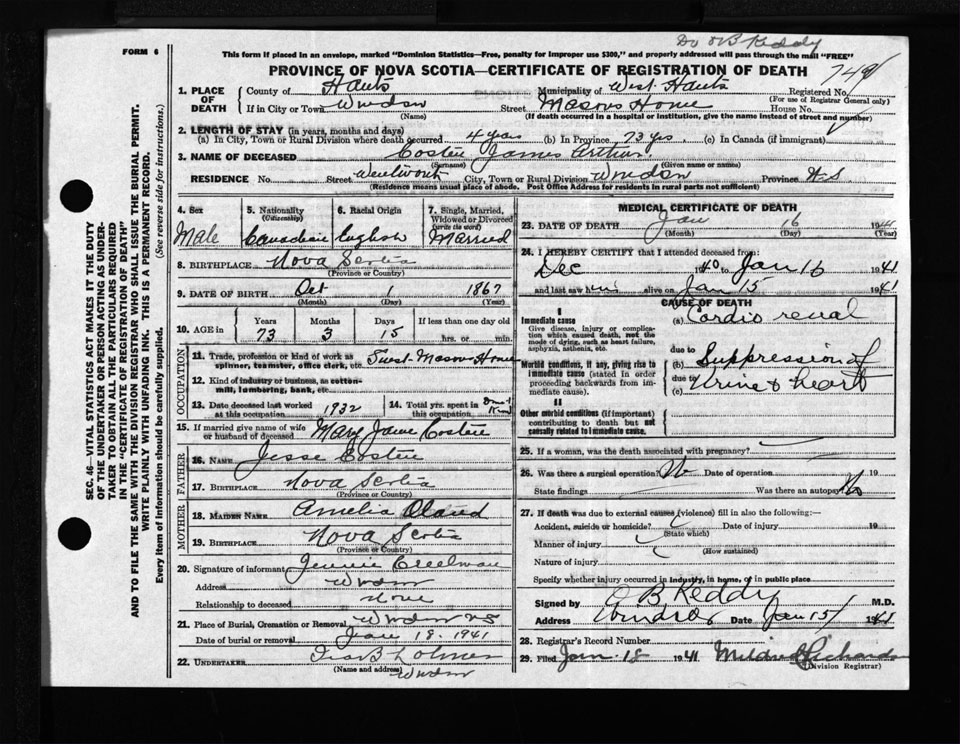 Dr OB Keddy
FORM 6
This form if placed in an envelope, marked "Dominion Statistics—Free, penalty for improper use $300," and properly addressed will pass through the mail "FREE"
PROVINCE OF NOVA SCOTIA—CERTIFICATE OF REGISTRATION OF DEATH
749
1. PLACE OF DEATH
County of Hants Municipality of West Hants Registered No.
(For use of Registrar General only)
If in City or Town Windsor Street Masons Home House No.
(Name) (If death occurred in a hospital or institution, give the name instead of street and number)
2. LENGTH OF STAY (in years, months and days)
(a) In City, Town or Rural Division where death occurred 4 yrs (b) In Province 73 yrs. (c) In Canada (if immigrant)
3. NAME OF DECEASED James Arthur
(Surname) (Given name or names)
RESIDENCE No. Street Wentworth City, Town or Rural Division Windsor Province N.S.
(Residence means usual place of abode. Post Office Address for residents in rural parts not sufficient)
4. Sex Male
5. Nationality (Citizenship) Canadian
6. Racial Origin English
7. Single, Married, Widowed or Divorced (write the word) Married
8. BIRTHPLACE Nova Scotia
(Province or Country)
9. DATE OF BIRTH Oct 1 1867
(Month) (Day) (Year)
10. AGE in Years Months Days If less than one day old
73 3 15 hrs. or min.
OCCUPATION
11. Trade, profession or kind of work as spinner, teamster, office clerk, etc. Mason Home
12. Kind of industry or business, as cotton-mill, lumbering, bank, etc.
13. Date deceased last worked at this occupation 1932
14. Total yrs. spent in this occupation Don't Know
15. If married give name of wife or husband of deceased Mary Jane
FATHER
16. Name Jesse
17. BIRTHPLACE Nova Scotia
(Province or Country)
MOTHER
18. MAIDEN NAME Amelia Oland
19. BIRTHPLACE Nova Scotia
(Province or Country)
20. Signature of informant Jennie Creelman
Address Windsor
Relationship to deceased None
21. Place of Burial, Cremation or Removal Windsor NS
Date of burial or removal Jan 18. 1941
22. UNDERTAKER
(Name and address) Windsor
MEDICAL CERTIFICATE OF DEATH
23. DATE OF DEATH Jan 16 1941
(Month) (Day) (Year)
24. I HEREBY CERTIFY that I attended deceased from:
Dec 1940 to Jan 16 1941
and last saw him alive on Jan 15 1941
CAUSE OF DEATH
I
Immediate cause
Give disease, injury or complication which caused death, not the mode of dying, such as heart failure, asphyxia, asthenia, etc.
(a) Cardio renal
due to
Morbid conditions, if any, giving rise to immediate cause (stated in order proceeding backwards from immediate cause).
(b) Suppression of
due to
(c) Urine & heart
II
Other morbid conditions (if important) contributing to death but not causally related to immediate cause.
25. If a woman, was the death associated with pregnancy?
26. Was there a surgical operation? No Date of operation 19
State findings Was there an autopsy? No
27. If death was due to external causes (violence) fill in also the following:—
Accident, suicide or homicide? Date of injury 19
(State which)
Manner of injury
(How sustained)
Nature of injury
Specify whether injury occurred in industry, in home, or in public place
Signed by O B Keddy M.D.
Address Windsor Date Jan 15/ 1941
28. Registrar's Record Number
29. Filed Jan 18 1941 Mildred Richards
(Division Registrar)
SEC. 46—VITAL STATISTICS ACT MAKES IT THE DUTY
OF THE UNDERTAKER OR PERSON ACTING AS UNDER-
TAKER TO OBTAIN ALL THE PARTICULARS REQUIRED
IN THE "CERTIFICATE OF REGISTRATION OF DEATH"
AND TO FILE THE SAME WITH THE DIVISION REGISTRAR WHO SHALL ISSUE THE BURIAL PERMIT.
WRITE PLAINLY WITH UNFADING INK. THIS IS A PERMANENT RECORD.
Every item of information should be carefully supplied. (See reverse side for instructions.)